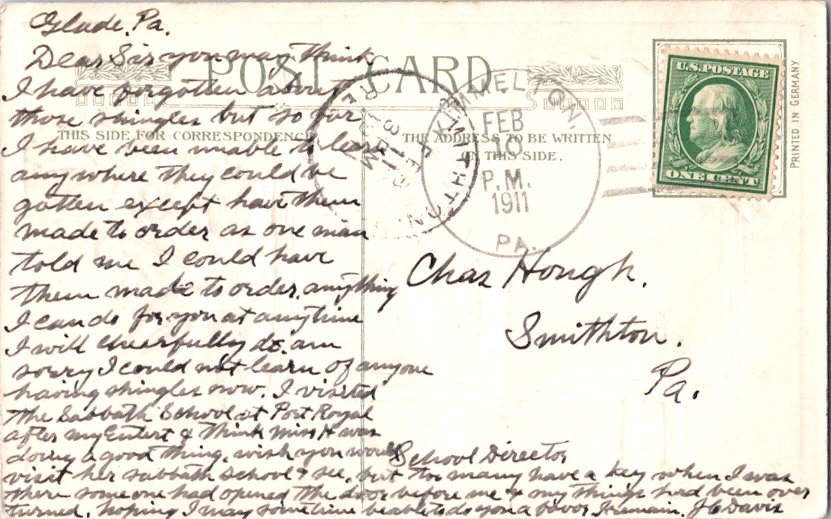 Glade, Pa.
Dear Sir you may think
I have forgotten about
those shingles but so far
I have been unable to learn
anywhere they could be
gotten except have them
made to order as one man
told me I could have
them made to order. anything
I can do for you at anytime
I will cheerfully do. am
sorry I could not learn of anyone
having shingles now. I visited
the Sabbath School at Port Royal
after my Entert & think Miss H was
doing a good thing. wish you would
visit her sabbath school & see, but too many have a key when I was
there someone had opened the door before me & my things had been over
turned. hoping I may sometime be able to do you a favor I remain, J C Davis
POST CARD
THIS SIDE FOR CORRESPONDENCE
THE ADDRESS TO BE WRITTEN
ON THIS SIDE.
FEB
P.M.
1911
PA.
SMITHTON
FEB
REC'D
U.S. POSTAGE
ONE CENT
PRINTED IN GERMANY
Chas Hough.
Smithton.
Pa.
School Director